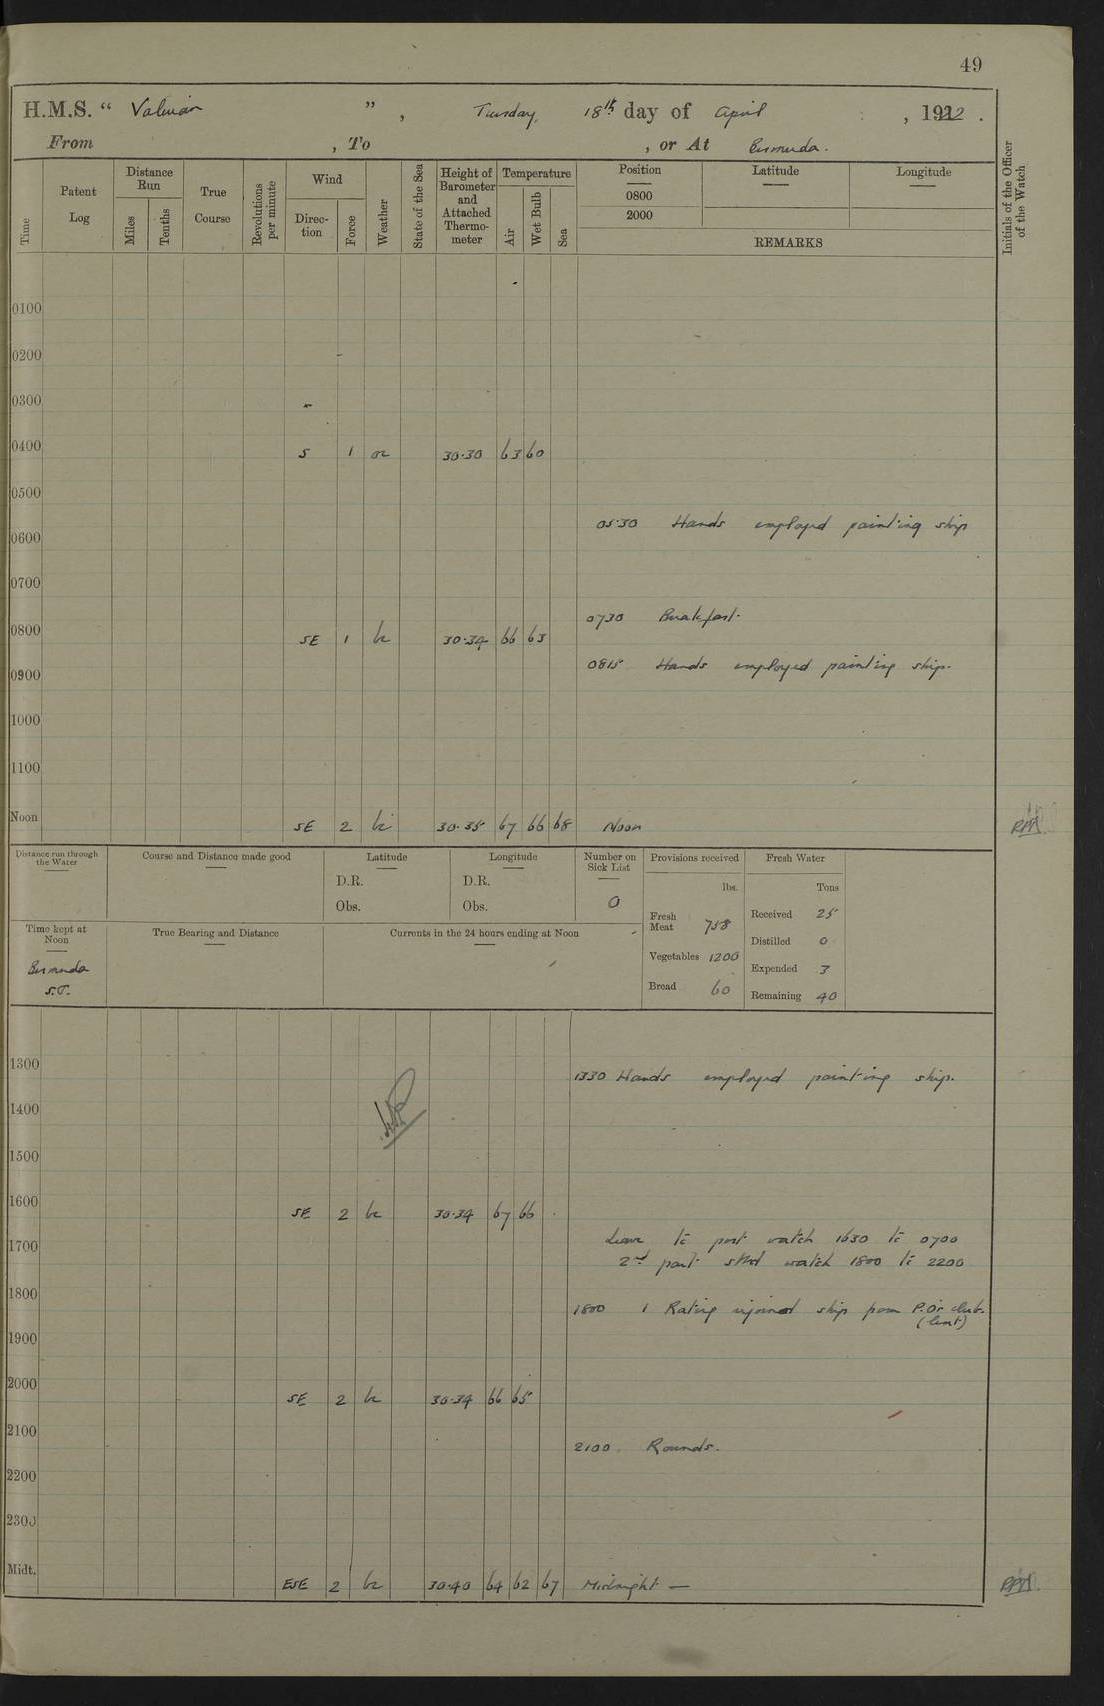 49
H.M.S. “ Valerian ” , Tuesday, 18th day of April , 1922 .
From , To , or At Bermuda.
Time
Patent Log
Distance Run
Miles
Tenths
True Course
Revolutions per minute
Wind
Direc- tion
Force
Weather
State of the Sea
Height of Barometer and Attached Thermo- meter
Temperature
Air
Wet Bulb
Sea
Position
0800
2000
Latitude
Longitude
REMARKS
Initials of the Officer of the Watch
0100
0200
0300
0400 S 1 30·30 63 60
0500
0530 Hands employed painting ship
0600
0700
0730 Breakfast.
0800 SE 1 bc 30·34 66 63
0815 Hands employed painting ship.
0900
1000
1100
Noon SE 2 bc 30·35 67 66 68 Noon
Distance run through the Water
Course and Distance made good
Latitude
D.R.
Obs.
Longitude
D.R.
Obs.
Number on Sick List
0
Provisions received
lbs.
Fresh Meat 758
Vegetables 1200
Bread 60
Fresh Water
Tons
Received 25
Distilled 0
Expended 3
Remaining 40
Time kept at Noon
Bermuda
S.T.
True Bearing and Distance
Currents in the 24 hours ending at Noon
1300
1330 Hands employed painting ship.
1400
1500
1600 SE 2 bc 30·34 67 66
Leave to port watch 1630 to 0700
1700
2nd part stbd watch 1800 to 2200
1800
1800 1 Rating rejoined ship from P.O's club.
(lent)
1900
2000 SE 2 bc 30·34 66 65
2100
2100. Rounds.
2200
2300
Midt. ESE 2 bc 30·40 64 62 67 Midnight —